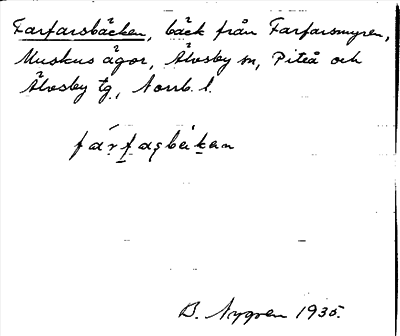 Farfarsbäcken, bäck från Farfarsmyren,
Muskus ägor, Älvsby sn, Piteå och
Älvsby tg, Norrb. l.
fárfasbèkan
B. Nygren 1935.